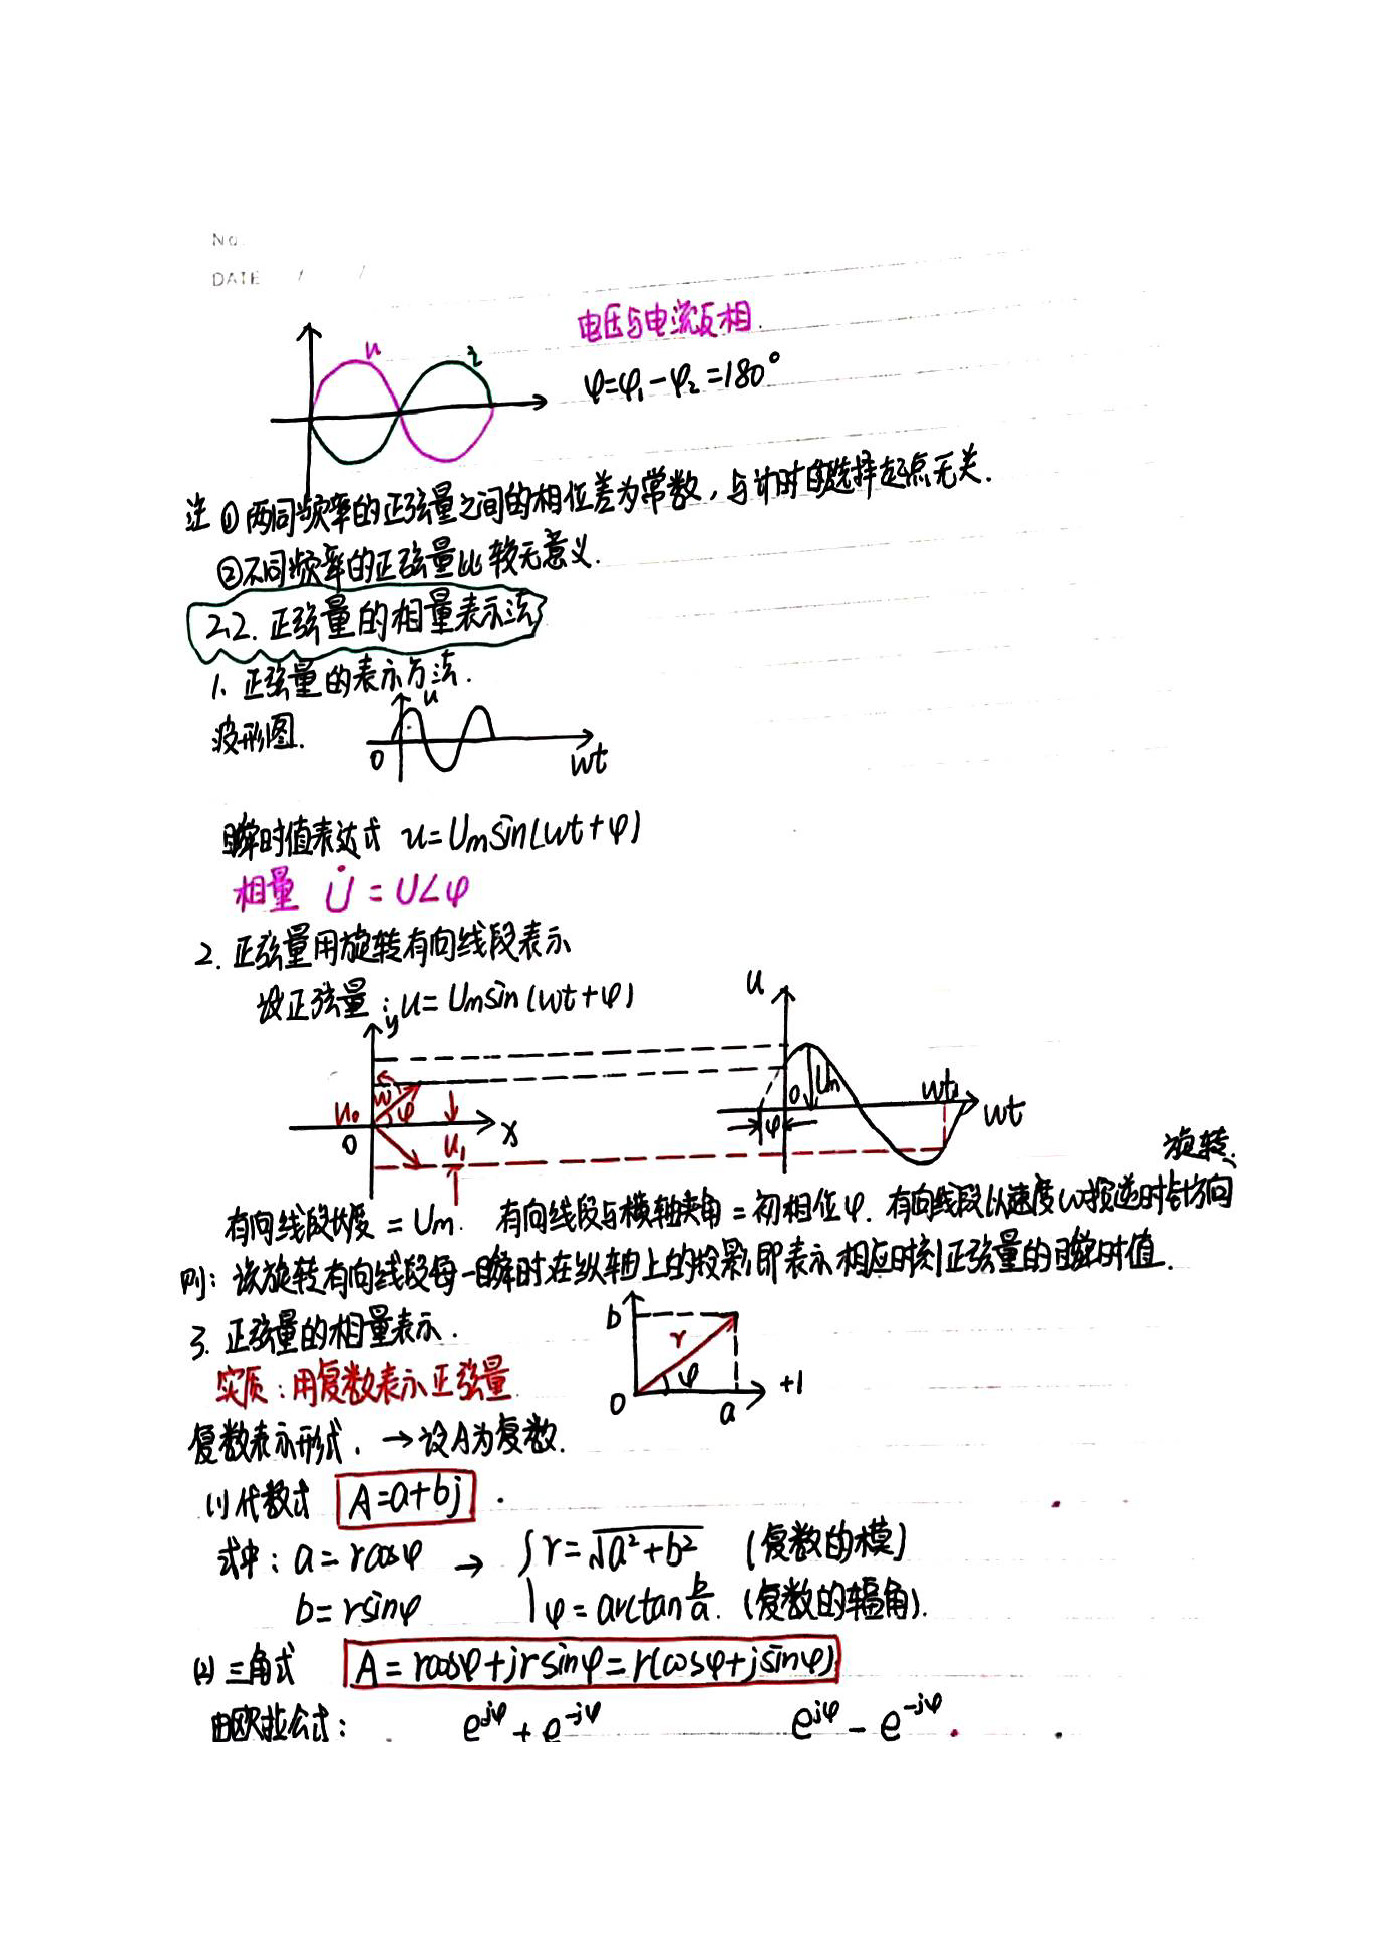 No.
DATE / /
电压与电流反相.
u i
φ=φ₁-φ₂=180°
注 ① 两同频率的正弦量之间的相位差为常数，与计时的选择起点无关.
②不同频率的正弦量比较无意义.
2.2. 正弦量的相量表示法
1. 正弦量的表示方法.
波形图. u 0 wt
瞬时值表达式 u=Umsin(wt+φ)
相量 U̇=U∠φ
2. 正弦量用旋转有向线段表示
设正弦量：u=Umsin(wt+φ)
y u
w φ u₀ 0 x u₁
0 Um φ wt₁ wt
旋转.
有向线段长度=Um. 有向线段与横轴夹角=初相位φ. 有向线段以速度w按逆时针方向
则：该旋转有向线段每一瞬时在纵轴上的投影即表示相应时刻正弦量的瞬时值.
3. 正弦量的相量表示.
b r φ 0 a +1
实质：用复数表示正弦量
复数表示形式. →设A为复数.
(1) 代数式 A=a+bj.
式中：a=rcosφ → { r=√a²+b² (复数的模)
b=rsinφ φ=arctan b/a. (复数的辐角).
(2) 三角式 A=rcosφ+jrsinφ=r(cosφ+jsinφ)
由欧拉公式： e^jφ+e^-jφ e^jφ-e^-jφ